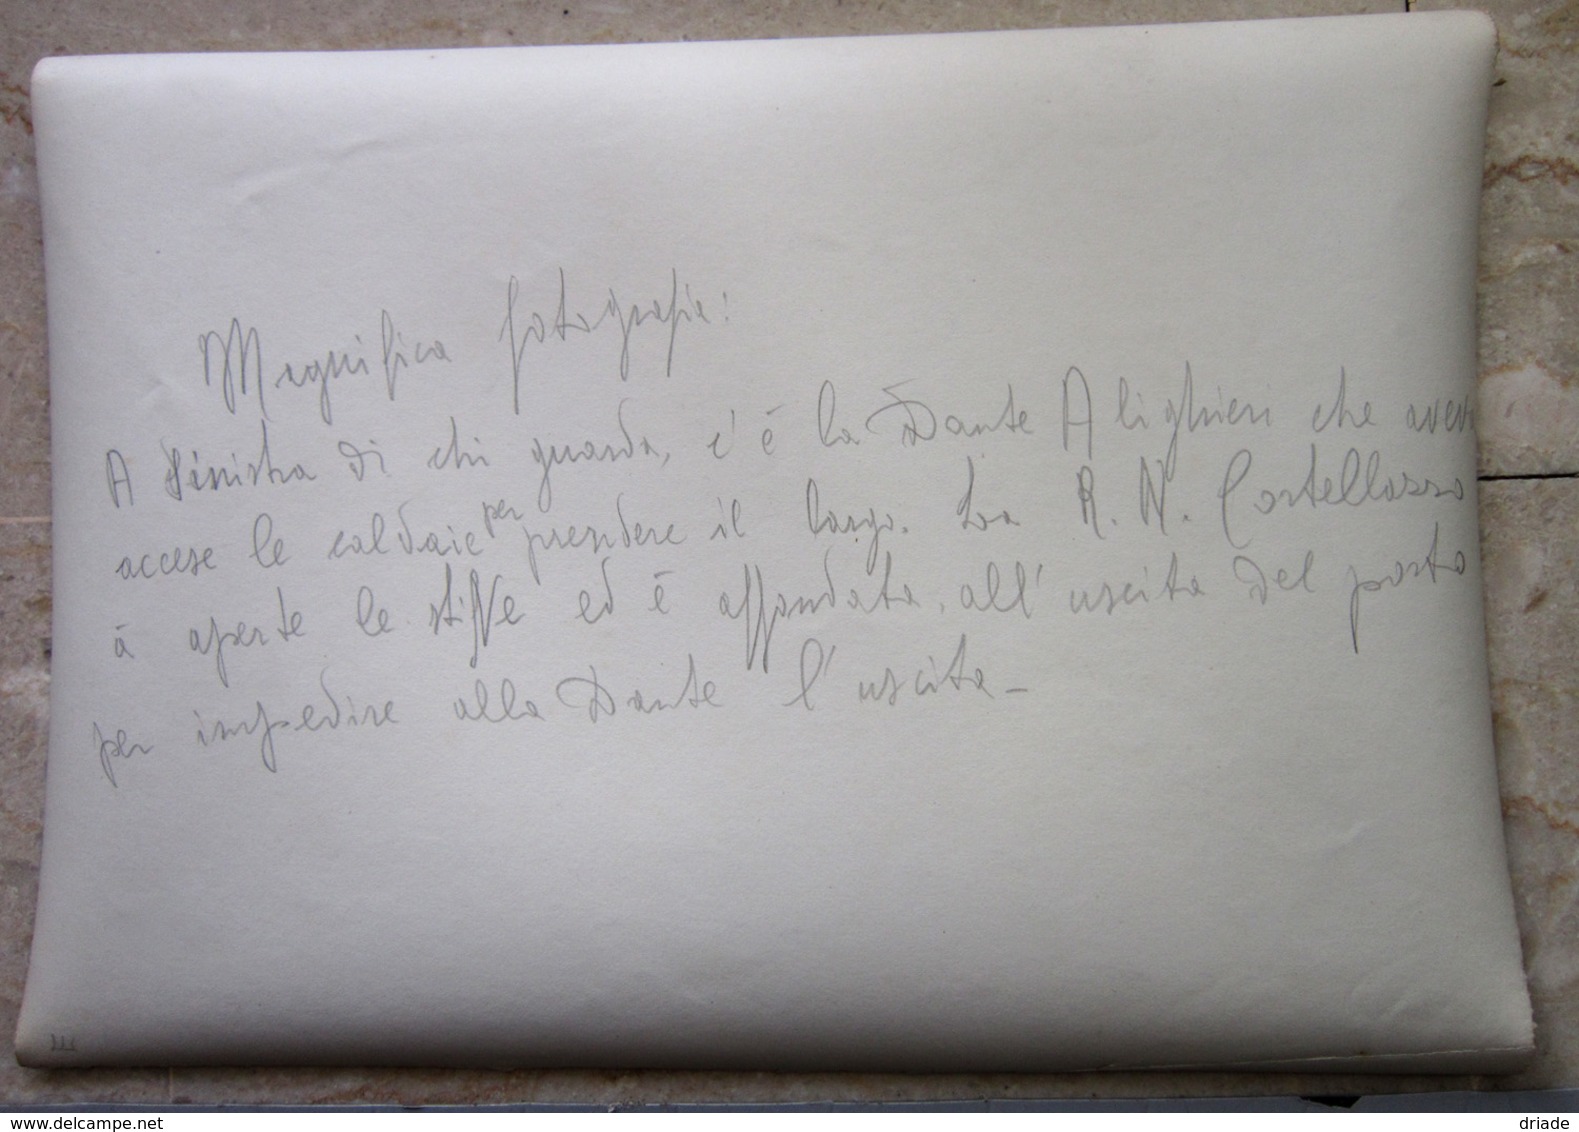 Magnifica fotografia:
A Sinistra di chi guarda, c'è la Dante Alighieri che aveva
accese le caldaie per prendere il largo. La R. N. Cortellazzo
à aperte le stive ed è affondata, all'uscita del porto
per impedire alla Dante l'uscita -
www.delcampe.net
driade